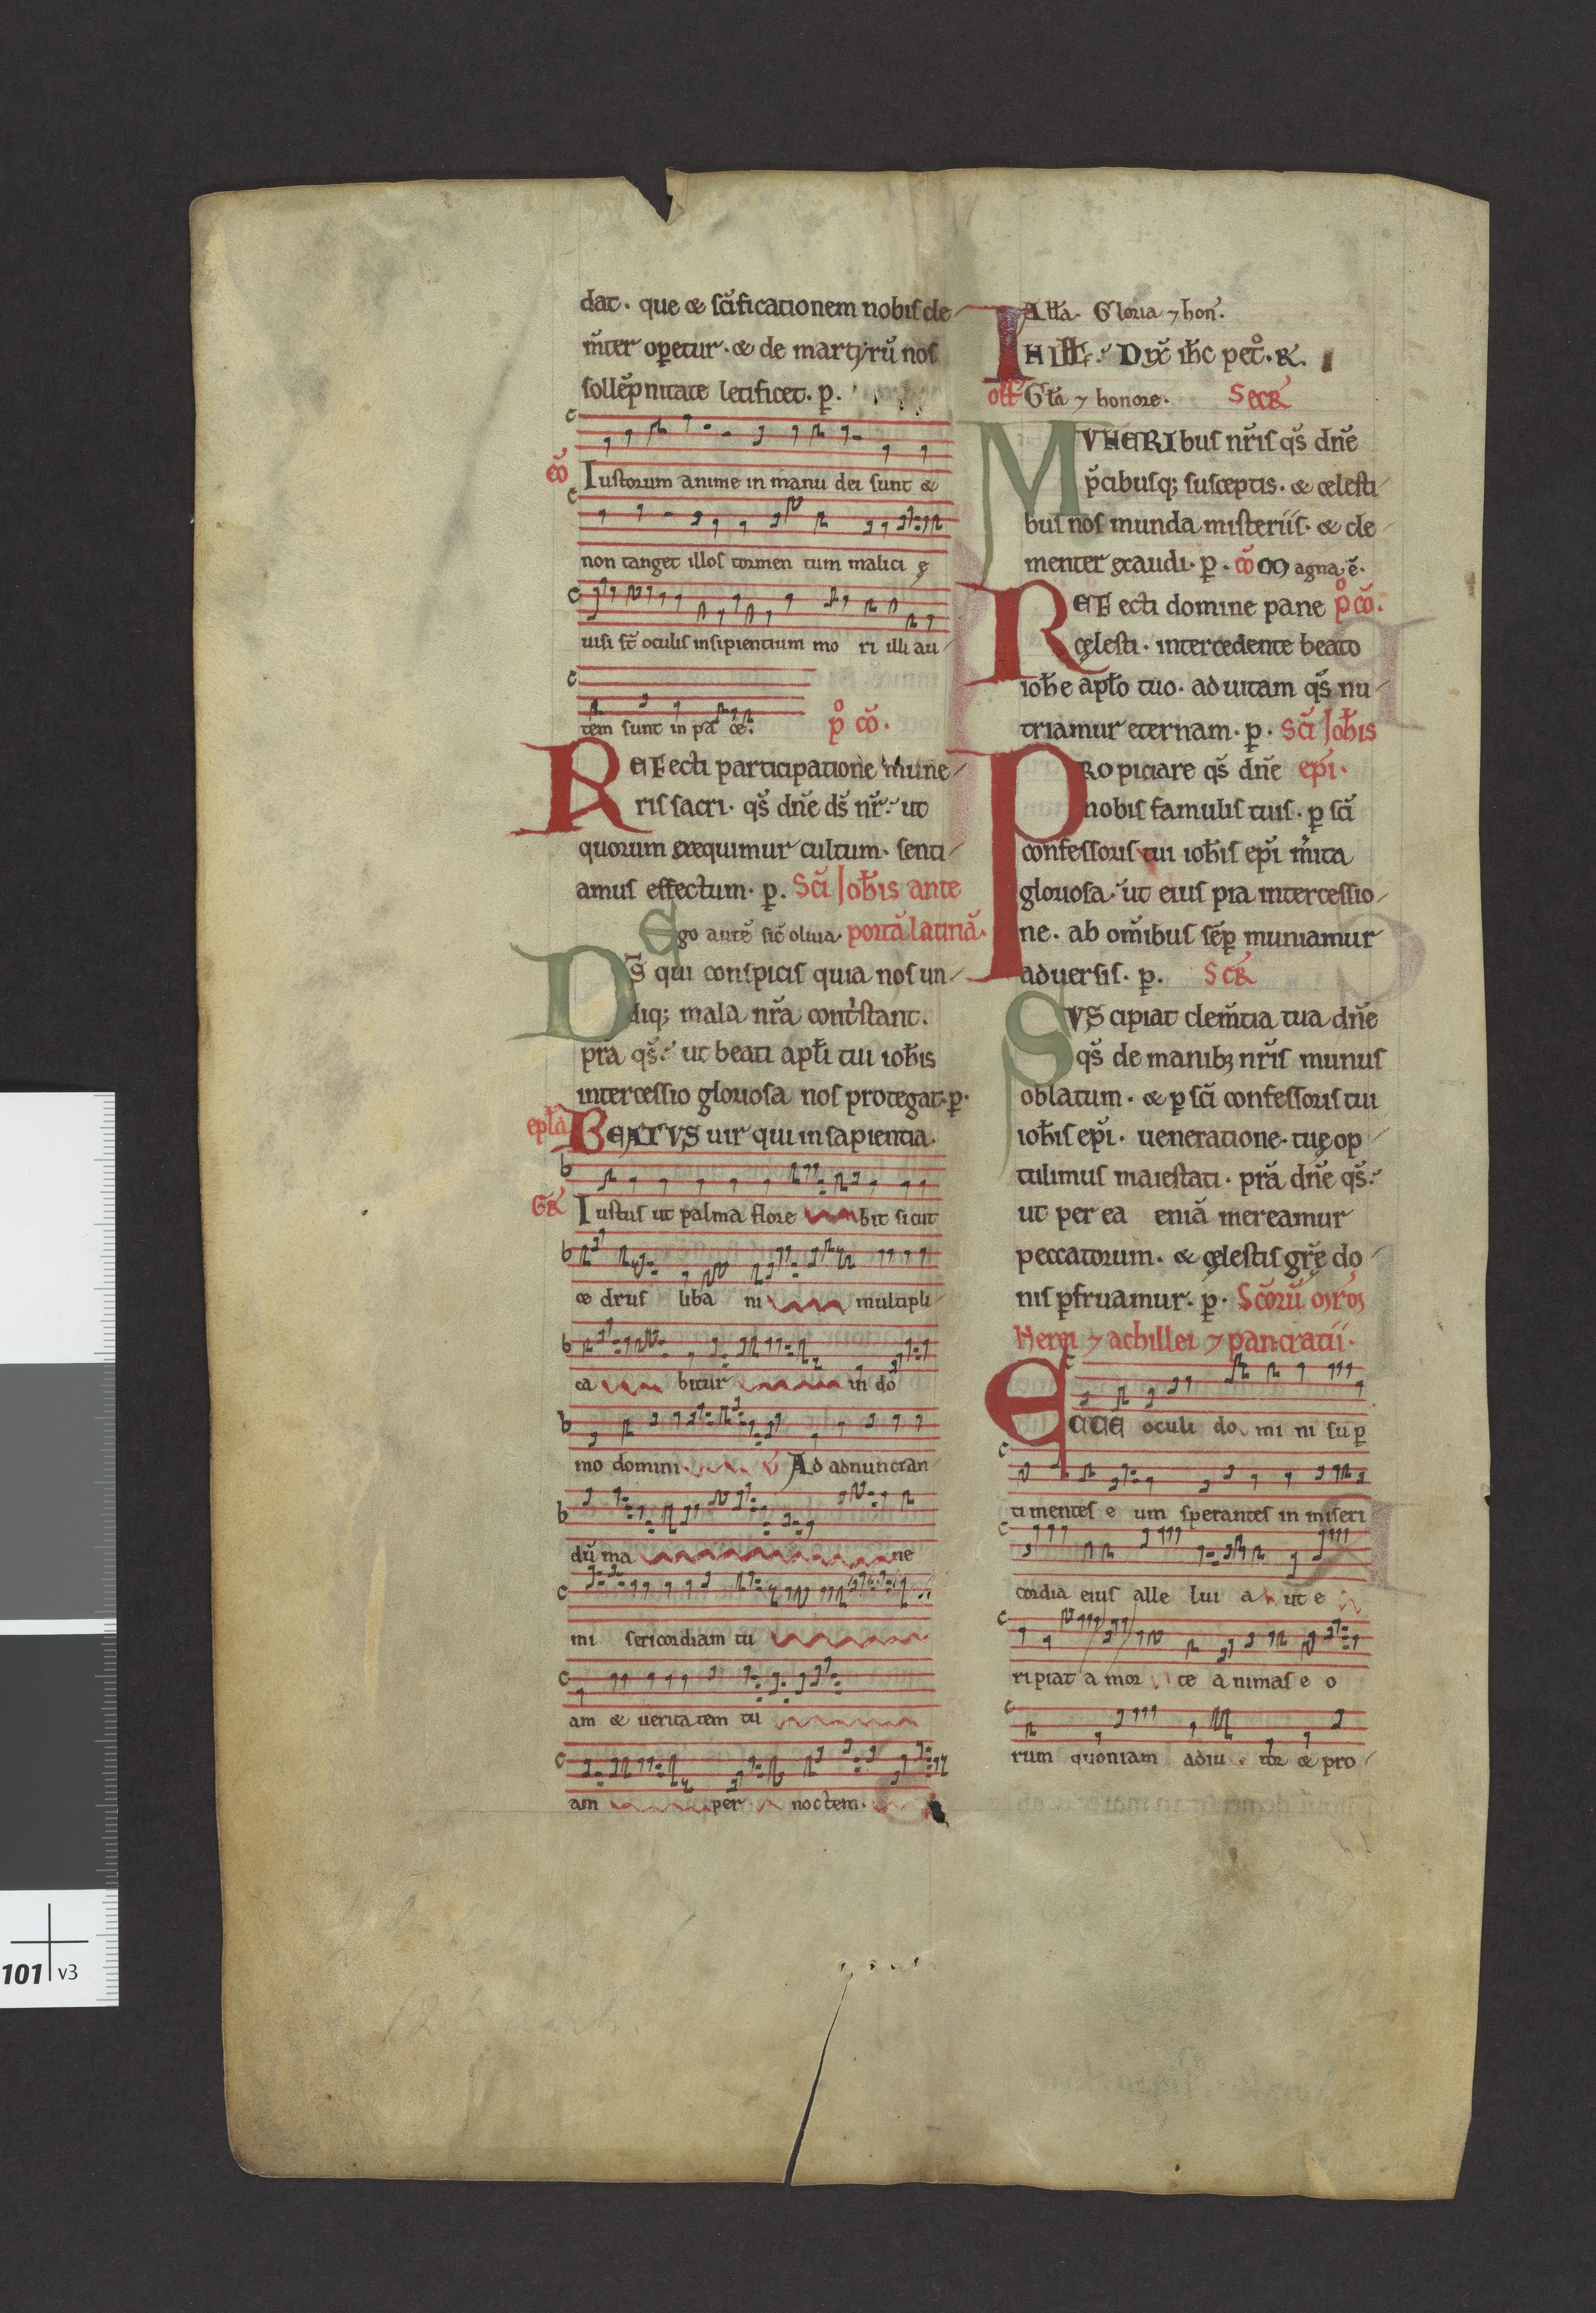 dat. que & sc̄ificationem nobis cle
m̄ter op̲etur. & de martyrū nos
sollēpnitate letificet. p̲.
cō Iustorum anime in manu dei sunt &
non tanget illos tormen tum malici ę
uisi st̄ oculis insipientium mo ri illi au
tem sunt in pa ce. p̊ cō.
REFecti participatione mune
ris sacri. qs̄ dn̄e ds̄ nr̄. ut
quorum exequimur cultum. senti
amus effectum. p̲. Sc̄i Ioh̄is ante
Ego autē sic̄ oliua. portā latinā.
DS̄ qui conspicis quia nos un
diq; mala nr̄a contͥstant.
pr̄a qs̄. ut beati apl̄i tui ioh̄is
intercessio gloriosa nos protegat. p̲.
epl̄a BEATVS uir qui in sapientia.
GR̄ Iustus ut palma flore bit sicut
ce drus liba ni multipli
ca bitur in do
mo domini. V̄ Ad adnuncian
dū ma ne
mi sericordiam tu
am & ueritatem tu
am per noctem.
All̄a. Gloria ⁊ hon̄.
IN ill̄. Dix̄ ih̄c pet̊. R.
off̄ Gl̄a ⁊ honore. SecR̄
MVNERIbus nr̄is qs̄ dn̄e
p̄cibusq; susceptis. & celesti
bus nos munda misteriis. & cle
menter exaudi. p̲. cō Magna ē.
REFecti domine pane p̊ cō.
cęlesti. intercedente beato
ioh̄e apl̄o tuo. ad uitam qs̄ nu
triamur eternam. p̲. Sc̄i Ioh̄is
PROpiciare qs̄ dn̄e ep̄i.
nobis famulis tuis. p̲ sc̄i
confessoris tui ioh̄is ep̄i m̄ita
gloriosa. ut eius pia intercessio
ne. ab om̄ibus sēp̲ muniamur
aduersis. p̲. ScR̄
SVScipiat clem̄tia tua dn̄e
qs̄ de manibꝫ nr̄is munus
oblatum. & p̲ sc̄i confessoris tui
ioh̄is ep̄i. ueneratione. tuę op
tulimus maiestati. pr̄a dn̄e qs̄.
ut per ea eniā mereamur
peccatorum. & cęlestis gr̄ę do
nis p̲fruamur. p̲. Sc̄orū mr̄ꝫ
Nerei ⁊ achillei ⁊ pancratii.
ECCE oculi do mi ni sup̲
ti mentes e um sperantes in miseri
cordia eius alle lui a ut e
ripiat a mor te a nimas e o
rum quoniam adiu tor & pro
101 v3